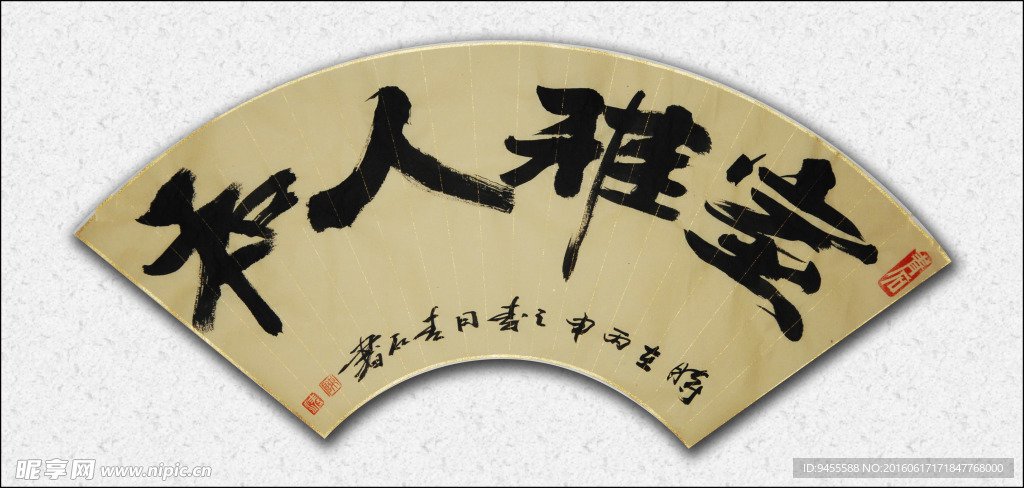 室雅人和
時在丙申之春月青石書
青石
昵享网 www.nipic.cn
ID:9455588 NO:20160617171847768000